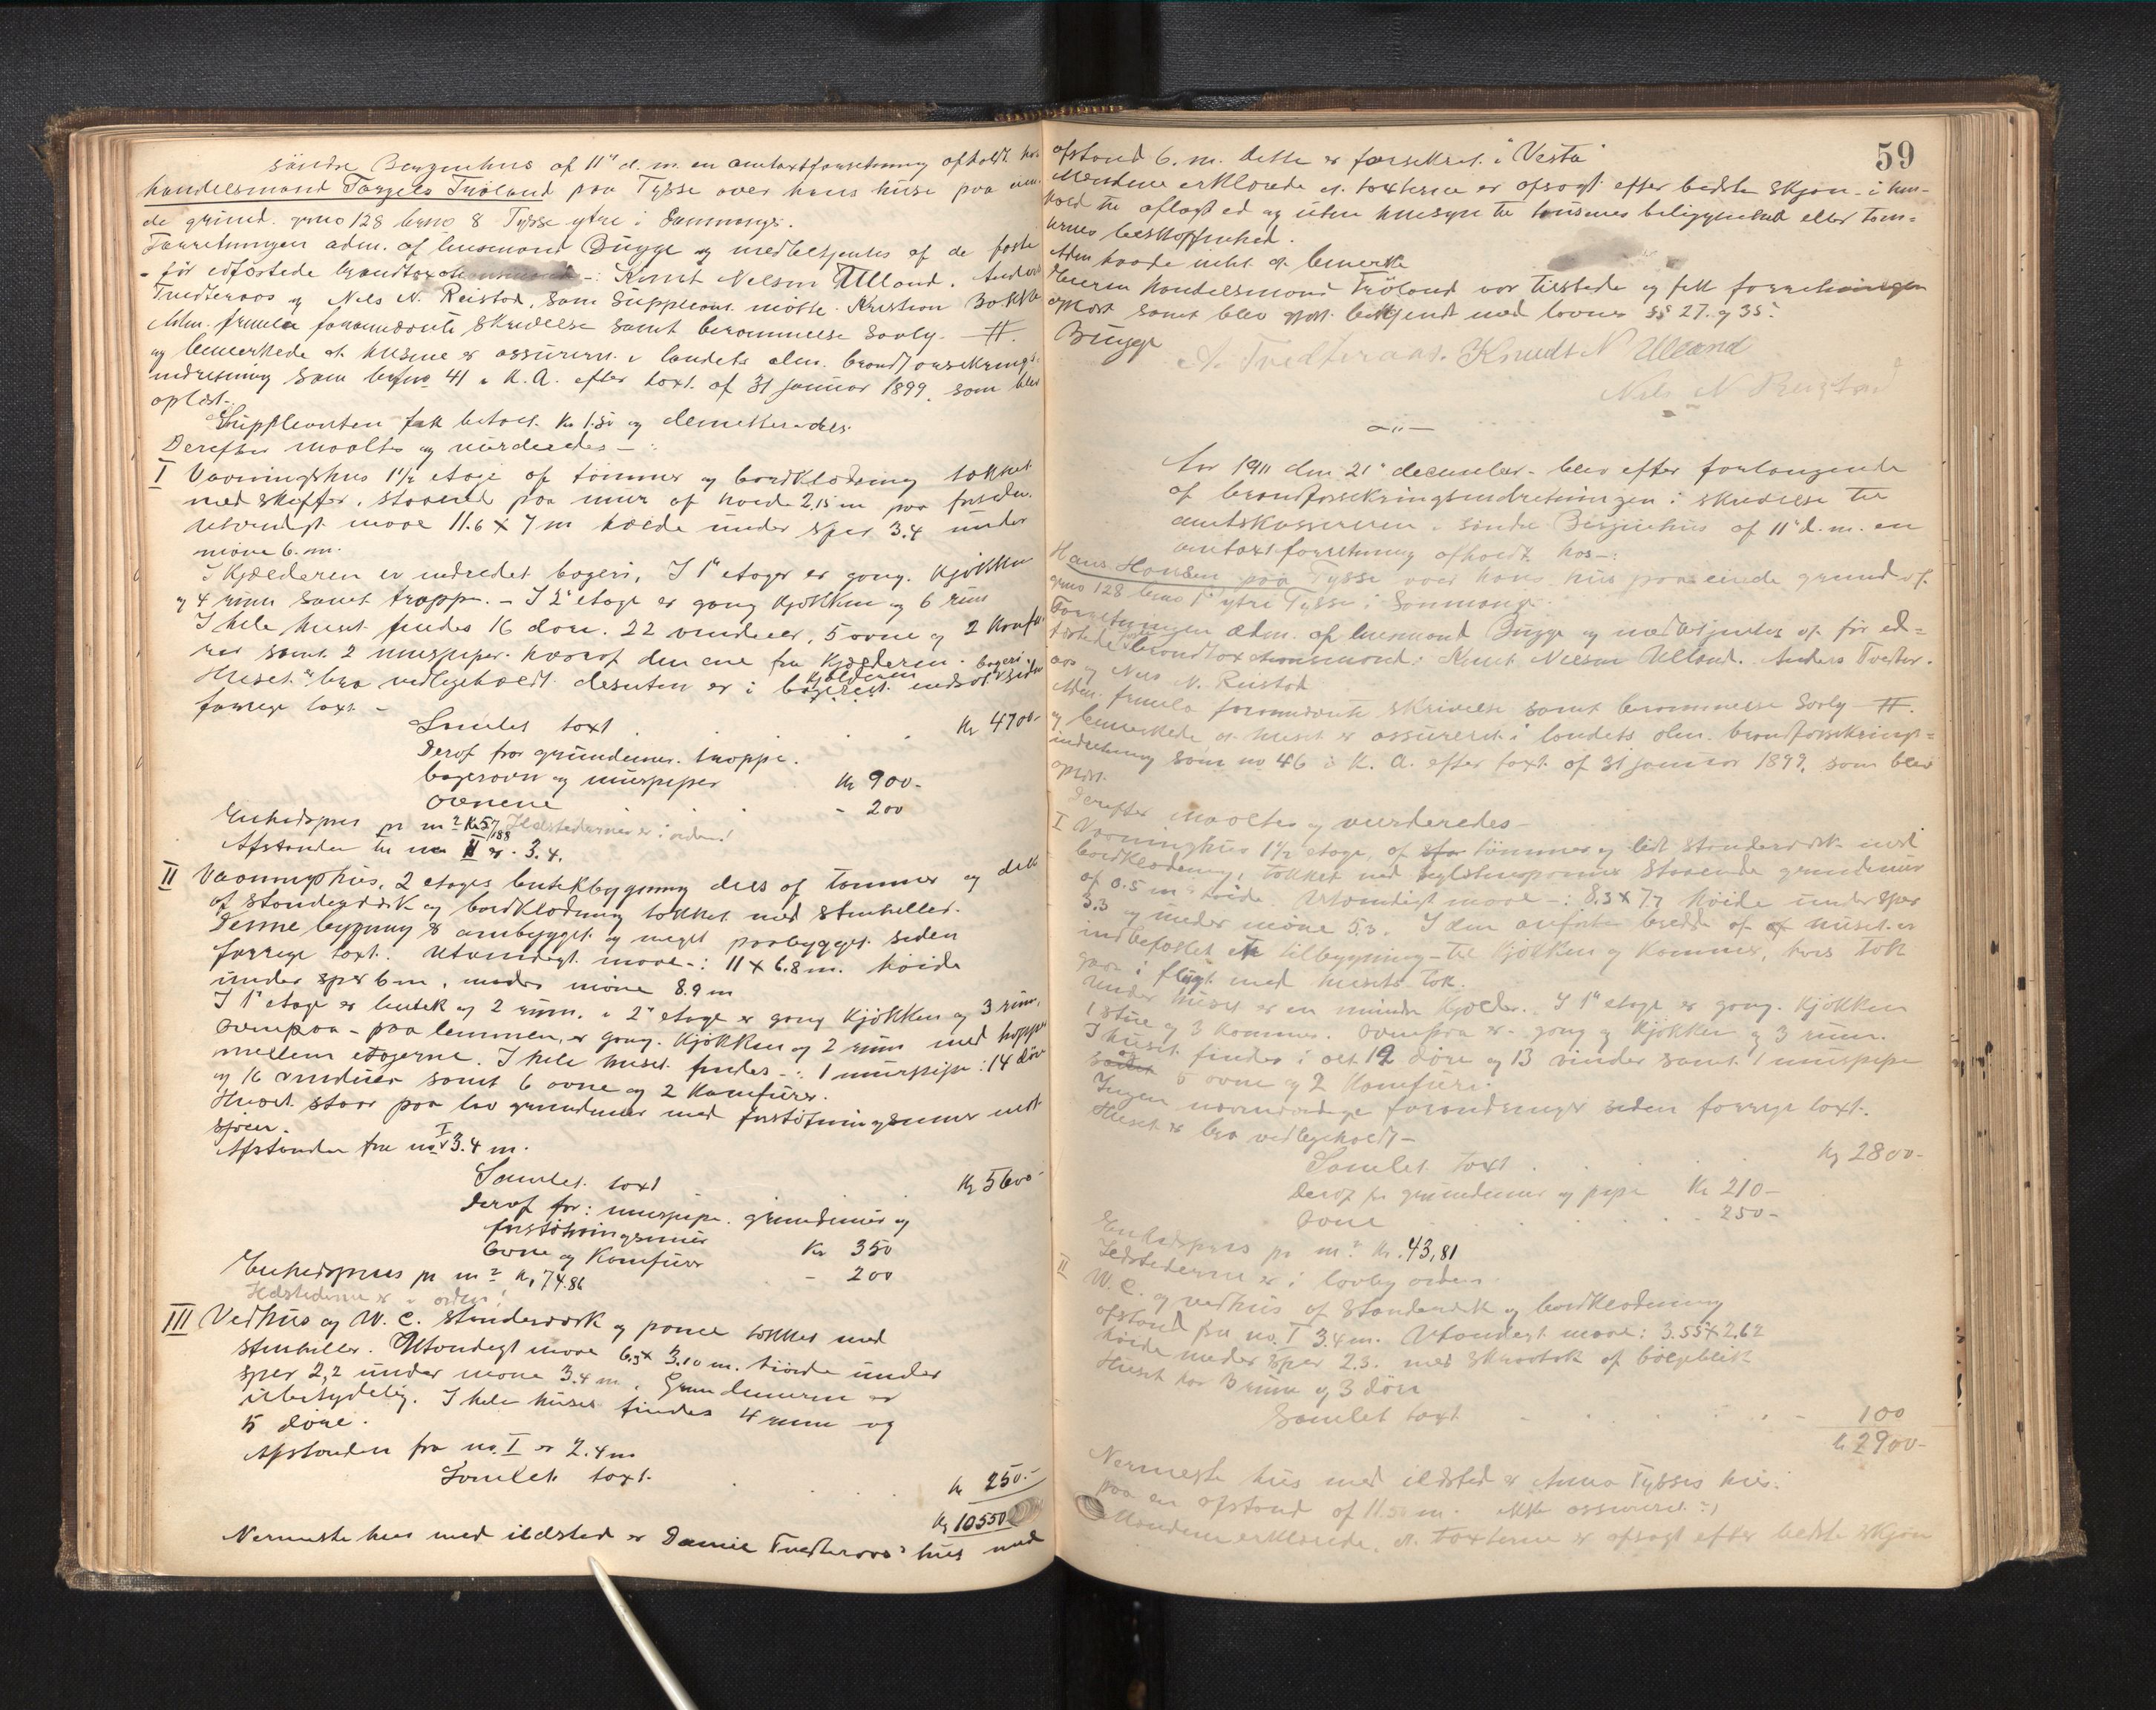 søndre Bergenhus af 11' d. m. en omtaxtforretning afholdt hos
handelsmand Torgels Trøland paa Tysse over hans huse paa
de grund. grno 128 brno 8 Tysse ytre i Sammanger.
Forretningen adm. af lensmand Bügge og medbetjentes af de faste
før edfæstede brandtaxationsmænd -: Knut Nelsen Ulland. Anders
Tvedteraas og Nils N. Reistad, som Suppleant møtte Kristian Bakke
Adm. fremla forannævnte skrivelse samt berammelse lovlg. #.
og bemerkede at husene er assureret i landets alm. brandforsikrings-
indretning som byno 41 i K. A. efter taxt af 31 januar 1899, som blev
oplæst.
Suppleanten fik betalt Kr 1.50 og demitteredes.
Derefter maaltes og vurderedes -:
I Vaaningshus 1 1/2 etage af tømmer og bordklædning tækket
med skiffer, staaende paa mur af høide 2,15 m paa forsiden.
Utvendigt maal 11.6 X 7 m høide under sper 3.4 under
møne 6. m.
I Kjælderen er indredet bageri, I 1' etage er gang. Kjøkken
og 4 rum samt trappe. - I 2' etage er gang Kjøkken og 6 rum
I hele huset findes 16 døre. 22 vinduer, 5 ovne og 2 Komfu-
rer samt 2 murpiper. hvoraf den ene fra Kjælderen.
Huset er bra vedligeholdt. desuten er i Kjælderen bageri indsat siden
forrige taxt. -
Samlet taxt . . . Kr 4700-
Deraf for grundmur. trappe.
bagerovn og murpiper Kr 900-
ovnene - 200
Enhedspris pr m² Kr 57/188 Ildstederne er i orden!
Afstanden til no II er 3.4.
II Vaaningshus, 2 etages butikbygning dels af tømmer og dels
af stenderværk og bordklædning tækket med stenheller.
Denne bygning er ombygget og meget paabygget siden
forrige taxt. Utvendigt maal -: 11 X 6.8 m. høide
under sper 6 m, under møne 8.9 m
I 1' etage er butik og 2 rum. i 2' etage er gang Kjøkken og 3 rum,
ovenpaa - paa lemmen, er gang. Kjøkken og 2 rum med trappe
mellem etagerne. I hele huset findes -: 1 murpipe : 14 døre
og 16 vinduer samt 6 ovne og 2 Komfurer.
Huset staar paa lav grundmur med forstøtningsmur mot
sjøen.
Afstanden fra no I 3.4 m.
Samlet taxt Kr 5600-
Deraf for: murpipe. grundmur og
forstøtningsmur Kr 350
Ovne og Komfurer - 200
Enhedspris pr m² Kr, 74.86
Ildstederne er i orden!
III Vedhus og W. C. stenderværk og panel tækket med
stenheller. Utvendigt maal 6.5 X 3.10 m. høide under
sper 2,2 under møne 3.4 m. Grundmuren er
ubetydelig. I hele huset findes 4 rum og
5 døre.
Afstanden fra no. I er 2.4 m
Samlet taxt. . . . Kr 250.-
Kr 10550
Nærmeste hus med ildsted er Daniel Tvedteraas' hus med
59
afstand 6. m. dette er forsikret i "Vesta"
Mændene erklærede at taxterne er afsagt efter bedste skjøn i hen-
hold til aflagt ed og uten hensyn til husenes beliggenhed eller tom-
ternes beskaffenhed.
Adm havde intet at bemerke
Eieren handelsmand Trøland var tilstede og fik forretningen
oplæst samt blev gjort bekjendt med lovens §§ 27. og 35.
Bügge
A. Tvedteraas. Knudt N Ulland
Nils N Reistad
Aar 1911 den 21' december - blev efter forlangende
af brandforsikringsindretningen i skrivelse til
amtskassereren i søndre Bergenhus af 11' d. m. en
omtaxtforretning afholdt hos -:
Hans Hansen paa Tysse over hans hus paa eiende grund af
grno 128 brno 1' ytre Tysse i Sammanger.
Forretningen adm. af lensmand Bügge og medbetjentes af før ed-
fæstede faste brandtaxationsmænd: Knut Nelsen Ulland. Anders Tvedter-
aas og Nils N. Reistad
Adm. fremla forannævnte skrivelse samt berammelse lovlg #.
og bemerkede at huset er assureret i landets alm. brandforsikrings-
indretning som no 46 i K. A. efter taxt af 31 januar 1899, som blev
oplæst.
Derefter maaltes og vurderedes -
I Vaaningshus 1 1/2 etage, af tømmer og lidt stenderværk med
bordklædning, tækket med teglstenspanner staaende grundmur
af 0.5 m høide. Utvendigt maal -: 8.3 X 7.7 høide under sper
3.3 og under møne 5.3. I den anførte bredde af huset er
indbefattet en tilbygning - til Kjøkken og kammer, hvis tak
gaar i flugt med husets tak.
Under huset er en mindre Kjælder. I 1' etage er gang. Kjøkken
1 stue og 3 kammer. ovenpaa er gang og Kjøkken og 3 rum.
I huset findes i alt 12 døre og 13 vinduer samt 1 murpipe
og 5 ovne og 2 Komfurer.
Ingen nævneværdige forandringer siden forrige taxt.
Huset er bra vedligeholdt -
Samlet taxt . . . Kr 2800-
Deraf for grundmur og pipe Kr 210-
ovne . . . 250-
Enhedspris pr m² Kr. 43,81
Ildstederne er i lovlig orden.
II W. C. og vedhus af stenderværk og bordklædning
afstand fra no. I 3.4 m. Utvendigt maal: 3.55 X 2,62
høide under sper 2.3. med skraatak af bølgeblik
Huset har 3 rum og 3 døre
Samlet taxt . . . 100
Kr 2900-
Nærmeste hus med ildsted er Anna Tysses hus.
paa en afstand af 11.50 m. ikke assureret
Mændene erklærede, at taxterne er afsagt efter bedste skjøn